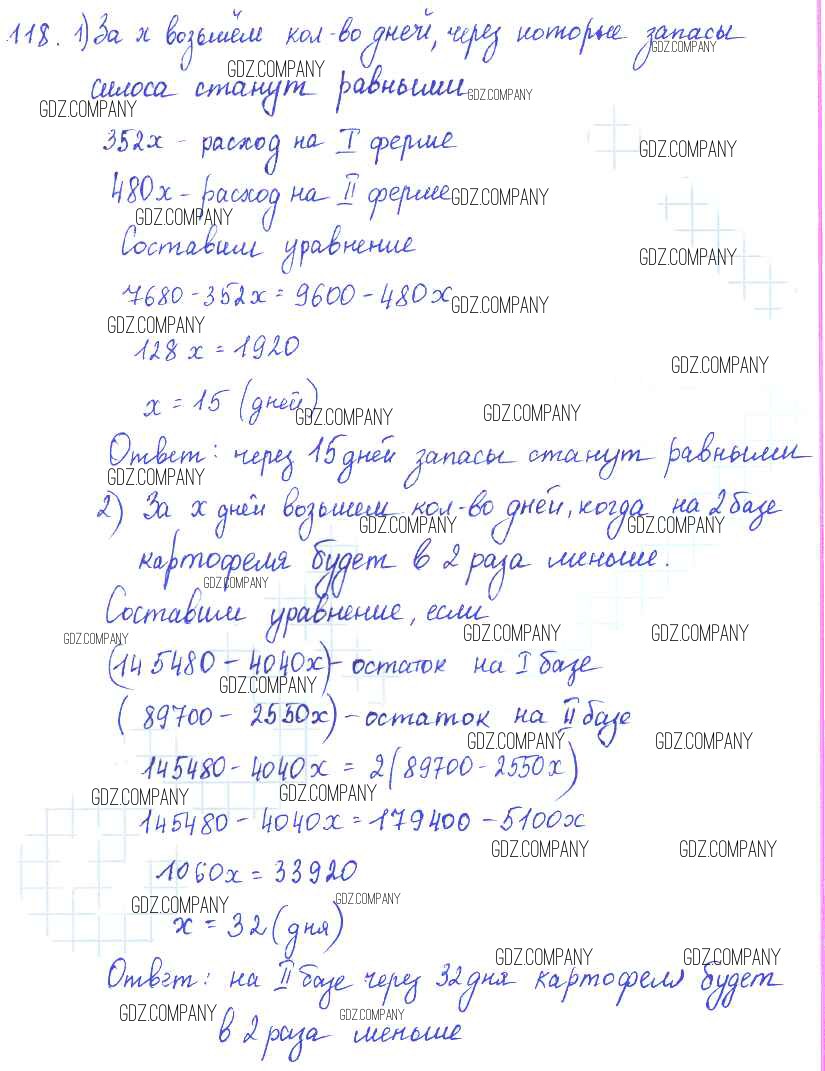 118. 1) За x возьмём кол-во дней, через которые запасы
GDZ.COMPANY
силоса станут равными
GDZ.COMPANY GDZ.COMPANY
GDZ.COMPANY
352x - расход на I ферме
GDZ.COMPANY
480x - расход на II ферме
GDZ.COMPANY
GDZ.COMPANY
Составим уравнение
GDZ.COMPANY
7680 - 352x = 9600 - 480x
GDZ.COMPANY
GDZ.COMPANY
128x = 1920
GDZ.COMPANY
x = 15 (дней)
GDZ.COMPANY GDZ.COMPANY
Ответ: через 15 дней запасы станут равными
GDZ.COMPANY
2) За x дней возьмем кол-во дней, когда на 2 базе
GDZ.COMPANY GDZ.COMPANY
картофеля будет в 2 раза меньше.
GDZ.COMPANY
Составим уравнение, если
GDZ.COMPANY GDZ.COMPANY GDZ.COMPANY
(145480 - 4040x) - остаток на I базе
GDZ.COMPANY
(89700 - 2550x) - остаток на II базе
GDZ.COMPANY GDZ.COMPANY
145480 - 4040x = 2(89700 - 2550x)
GDZ.COMPANY GDZ.COMPANY
145480 - 4040x = 179400 - 5100x
GDZ.COMPANY GDZ.COMPANY
1060x = 33920
GDZ.COMPANY GDZ.COMPANY
x = 32 (дня)
GDZ.COMPANY GDZ.COMPANY
Ответ: на II базе через 32 дня картофеля будет
GDZ.COMPANY GDZ.COMPANY
в 2 раза меньше